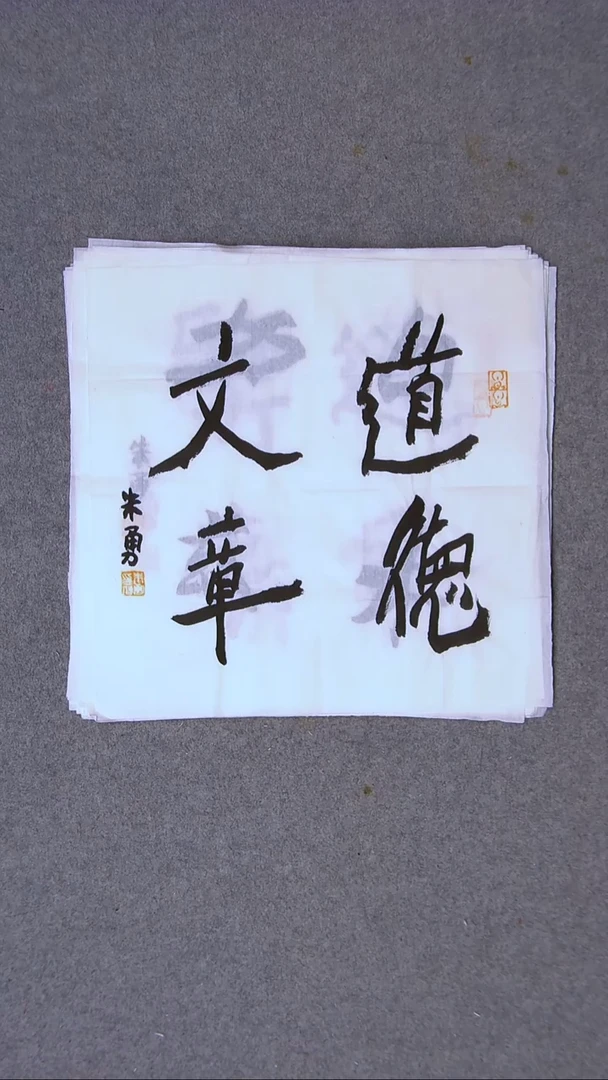 道德
文章
朱勇